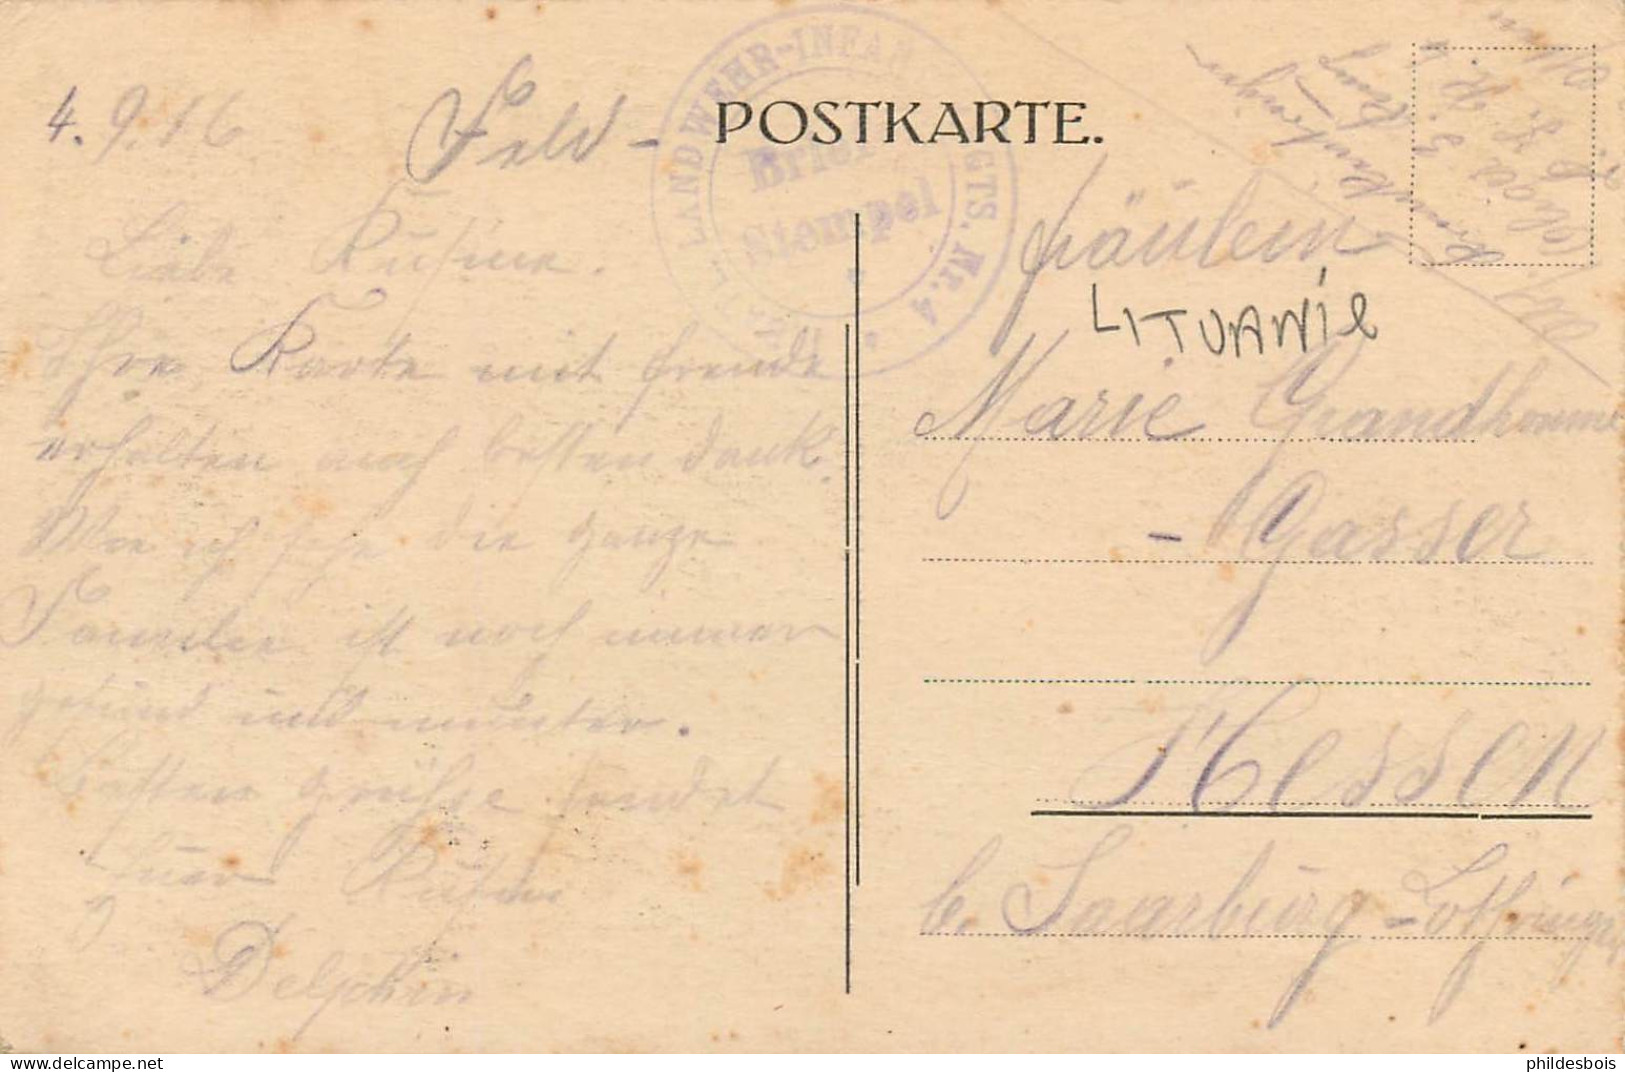 4. 9. 16
Feld-
POSTKARTE.
LANDWEHR-INFANT RGTS. Nr. 4
Brief
Stempel
Liebe Kusine.
Ihre Karte mit freude
erhalten auch besten dank.
Wie ich sehe die ganze
Familie ist noch immer
gesund und munter.
Besten grüße sendet
Euer Kusin
Delphin
fräulein
LITUANIE
Marie Grandhomme
- Gasser
Hessen
b. Saarburg-Lothringen
philedesbois